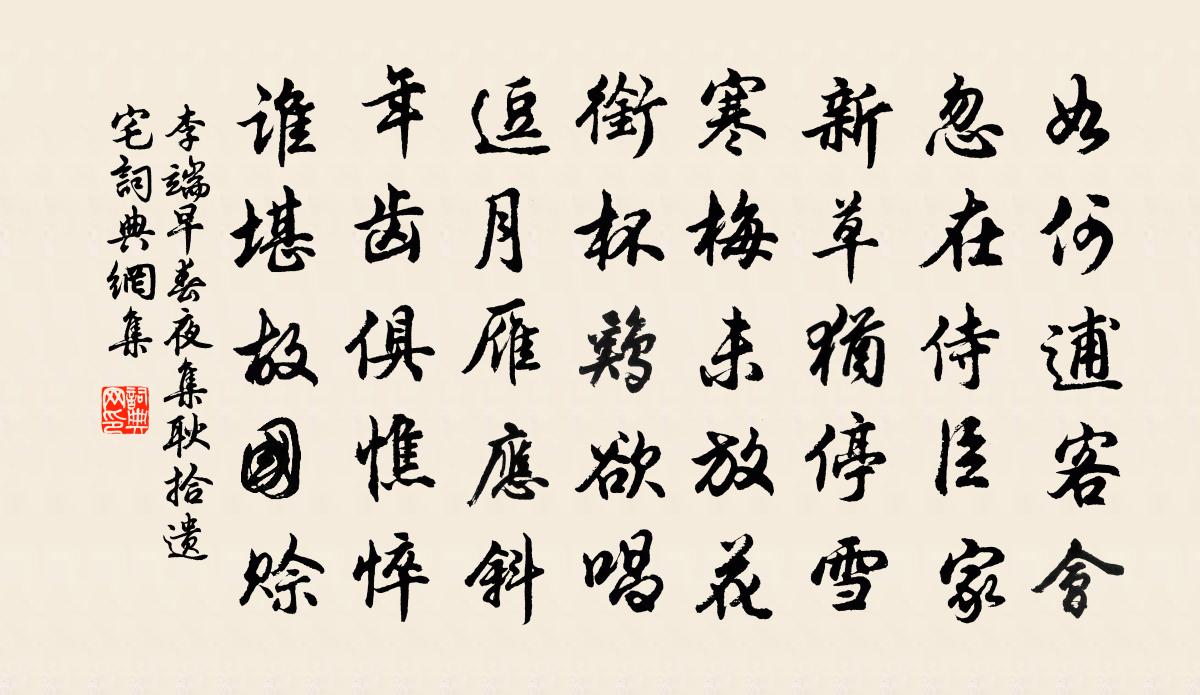 如何逋客會
忽在侍臣家
新草猶停雪
寒梅未放花
銜杯鷄欲唱
逗月雁應斜
年齿俱憔悴
誰堪故國賒
李端早春夜集耿拾遺
宅詞典網集
詞典
网印